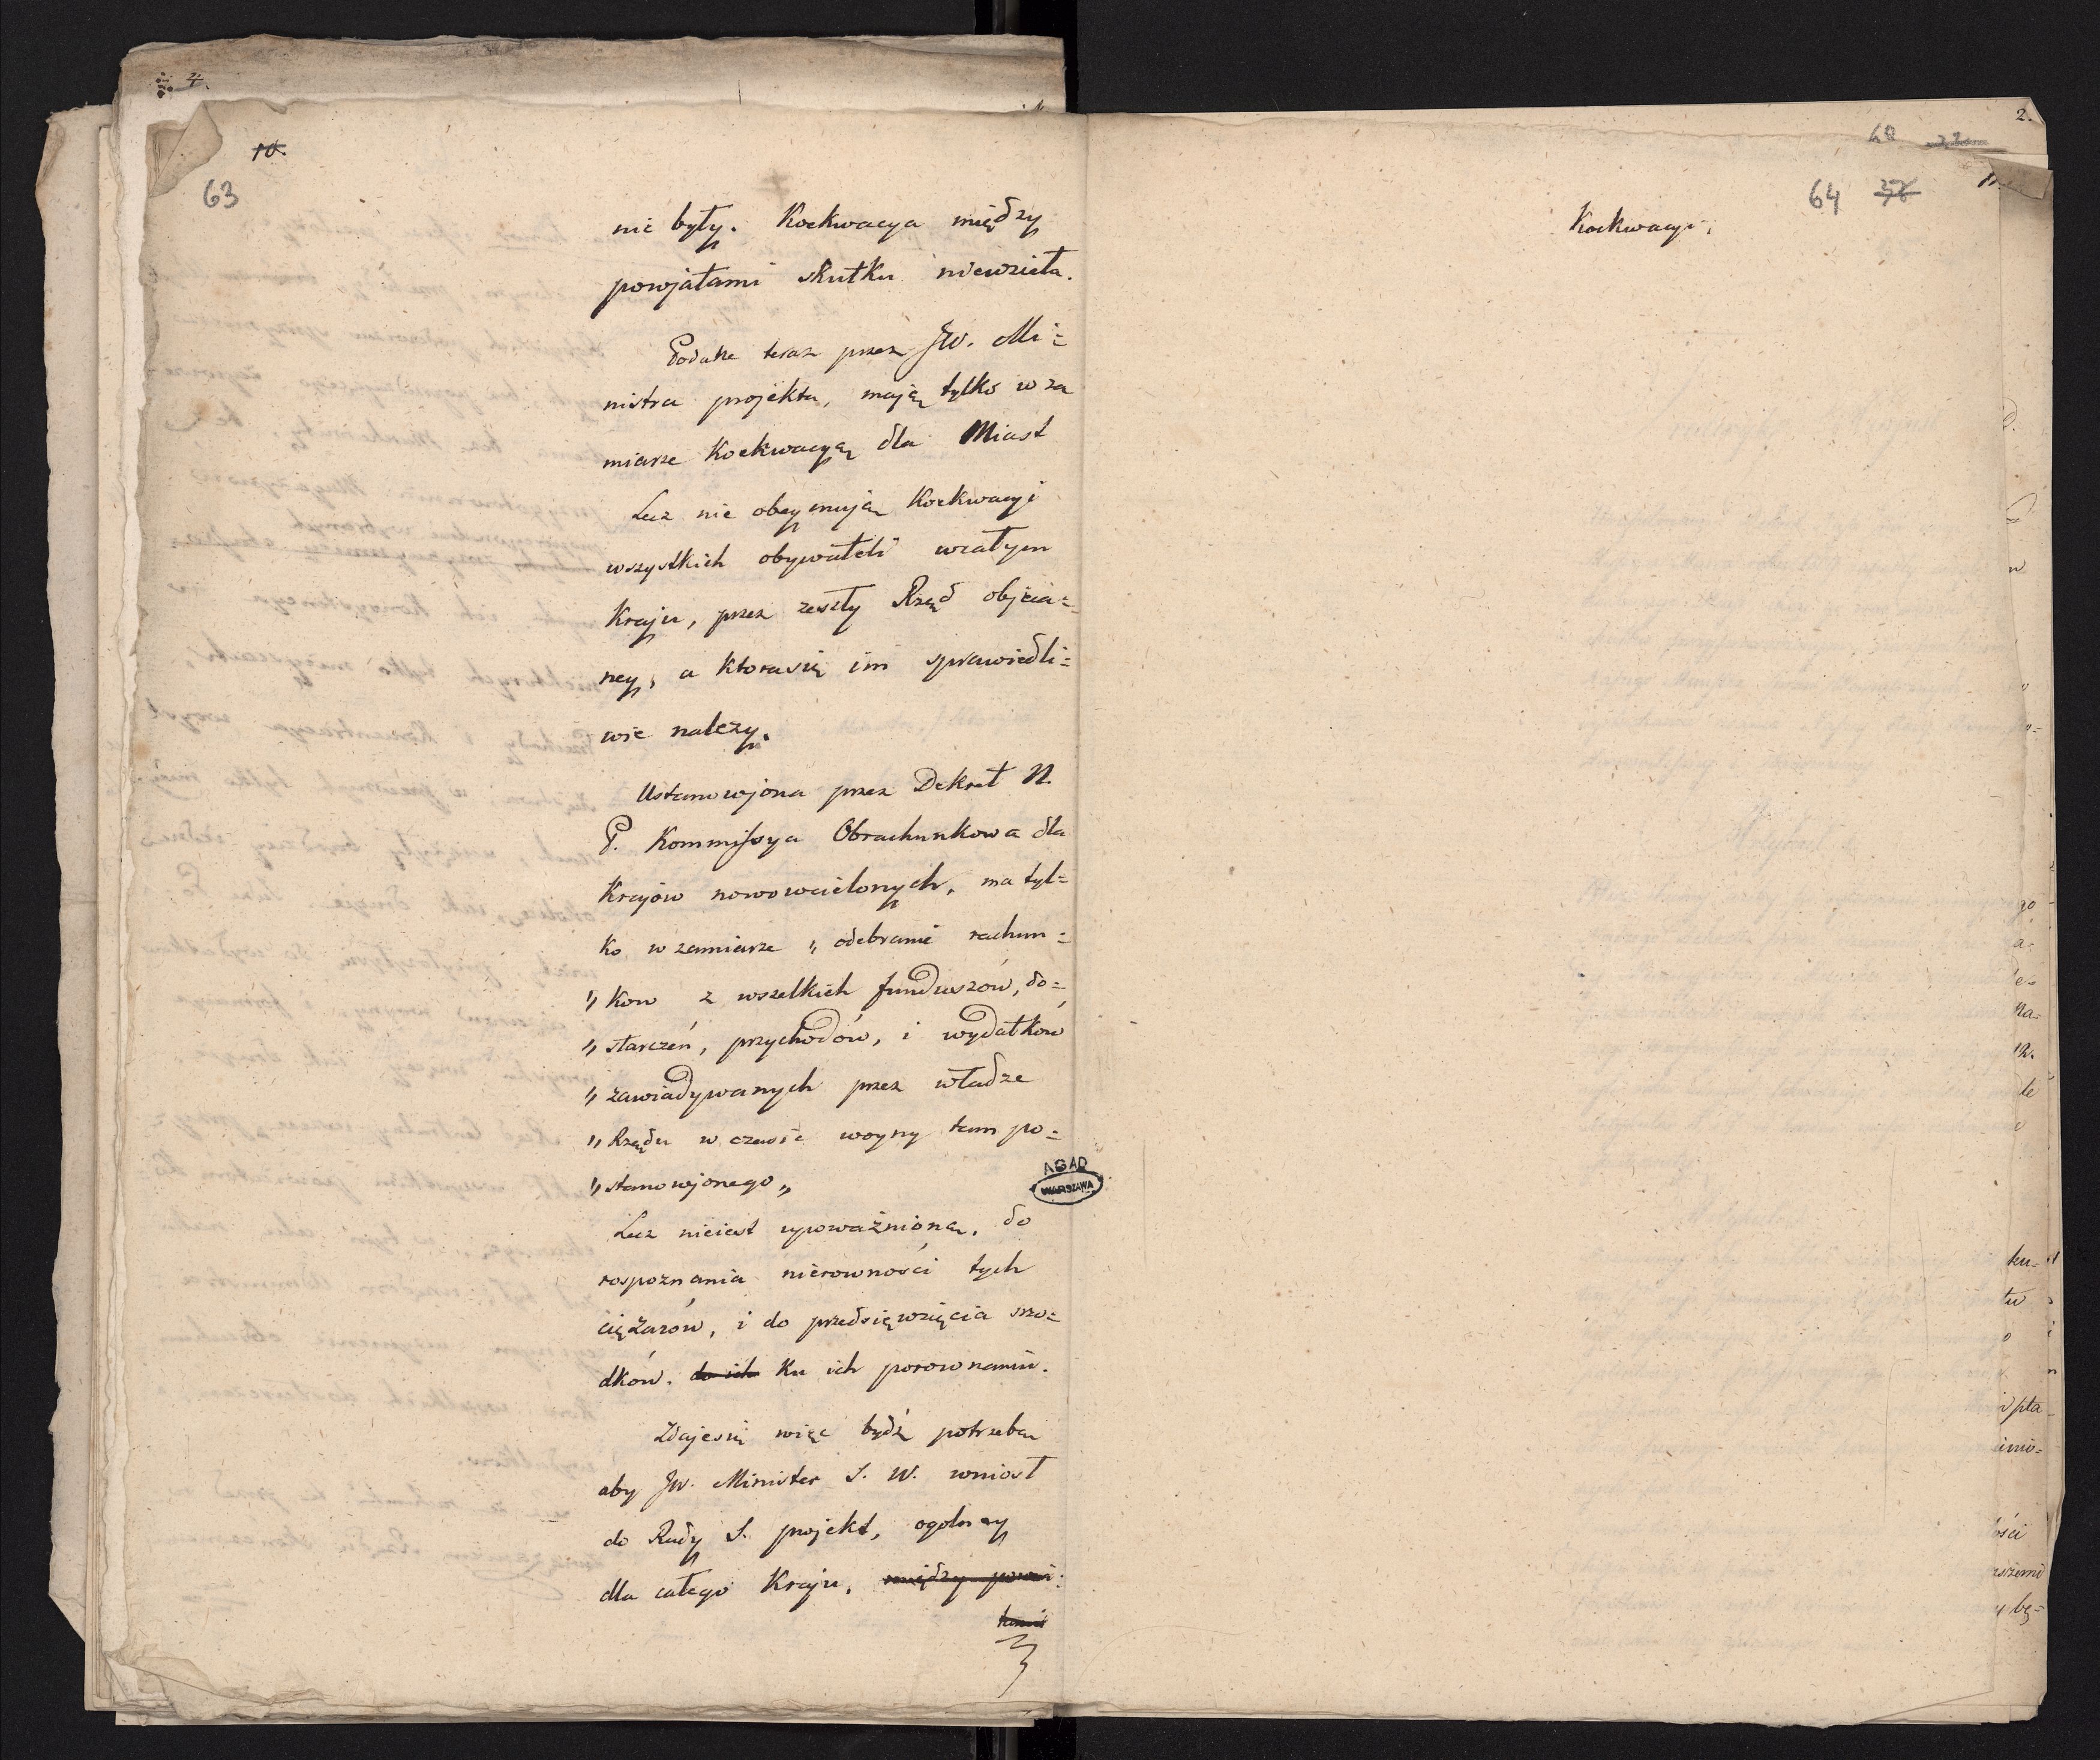 4.
10.
63
nie były. Koekwacya między
powjatami skutku niewzieła.
Podane teraz przez JW. Mi=
nistra projekta, mają tylko w za
miarze Koekwacyą dla Miast
Lecz nie obeymują Koekwacyi
wszystkich obywateli wcałym
Kraju, przez zeszły Rząd objeia=
ney, a ktorasię im sprawiedli=
wie należy.
Ustanowjona przez Dekret N.
P. Kommissya Obrachunkowa dla
Krajów nowowcielonych, ma tyl=
ko w zamiarze „ odebranie rachun=
„ kow z wszelkich funduszów, do=
„ starczeń, przychodów, i wydatków
„ zawiadywanych przez władze
„ Rządu w czasie woyny tam po=
„ stanowjonego „
Lecz nieiest upoważniona, do
rospoznania nierowności tych
ciężarów, i do przedsięwzięcia srzo=
dków. do ich Ku ich porownaniu.
Zdajesię więc bydź potrzeba
aby JW. Minister S. W. wniosł
do Rady S. projekt, ogolny
dla całego Kraju, między powia:
tami
AGAD
WARSZAWA
2.
48 22
64
Koekwacyi,
go
a=
e=
na=
te
ku=
tu
ości
szemi
bę=